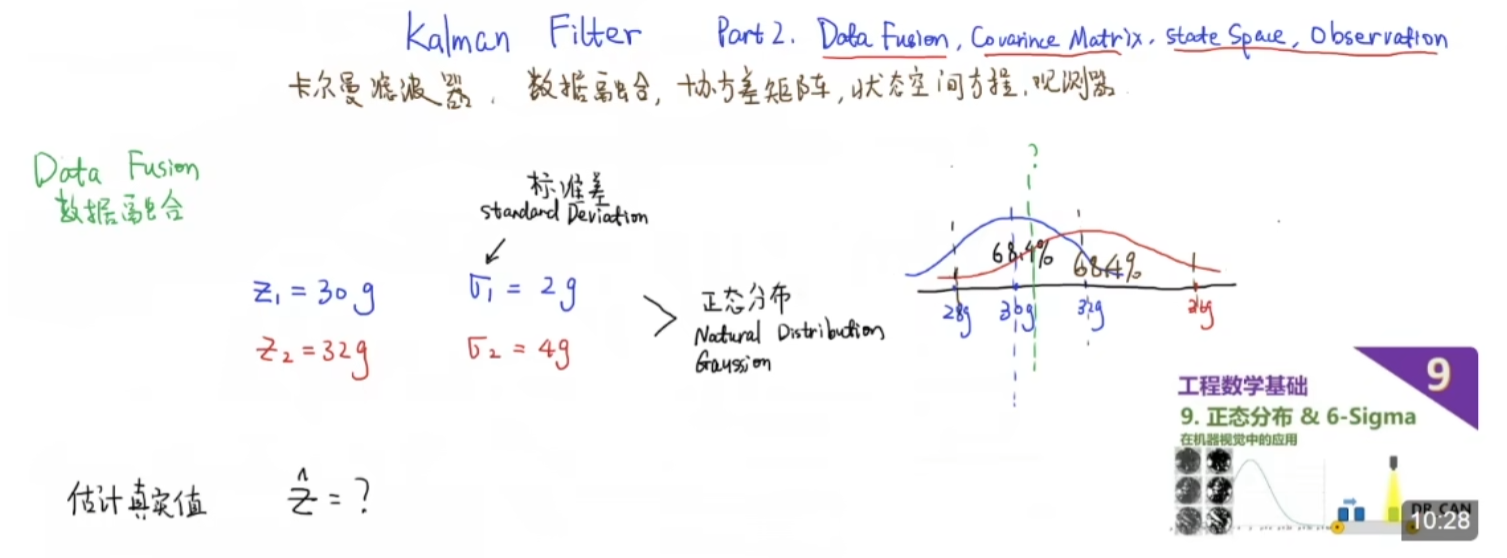 Kalman Filter Part 2. Data Fusion, Covarince Matrix. State Space, Observation
卡尔曼滤波器. 数据融合, 协方差矩阵, 状态空间方程. 观测器
Data Fusion
数据融合
标准差
Standard Deviation
z₁ = 30g σ₁ = 2g
z₂ = 32g σ₂ = 4g
正态分布
Natural Distribution
Gaussion
?
68.4% 68.4%
28g 30g 32g 36g
估计真实值 ẑ = ?
9
工程数学基础
9. 正态分布 & 6-Sigma
在机器视觉中的应用
DR. CAN
10:28